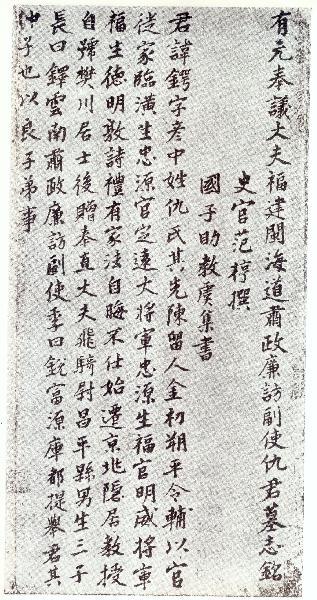 有元奉議大夫福建閩海道肅政廉訪副使仇君墓志銘
史官范梈撰
國子助教虞集書
君諱鍔字彦中姓仇氏其先陳留人金初朔平令輔以官
徙家臨潢生忠源官定遠大將軍忠源生福官明威將軍
福生德明敦詩禮有家法自晦不仕始遷京兆隱居教授
自號樊川居士後贈奉直大夫飛騎尉昌平縣男生三子
長曰鐸雲南肅政廉訪副使季曰銳富源庫都提舉君其
中子也以良子弟事